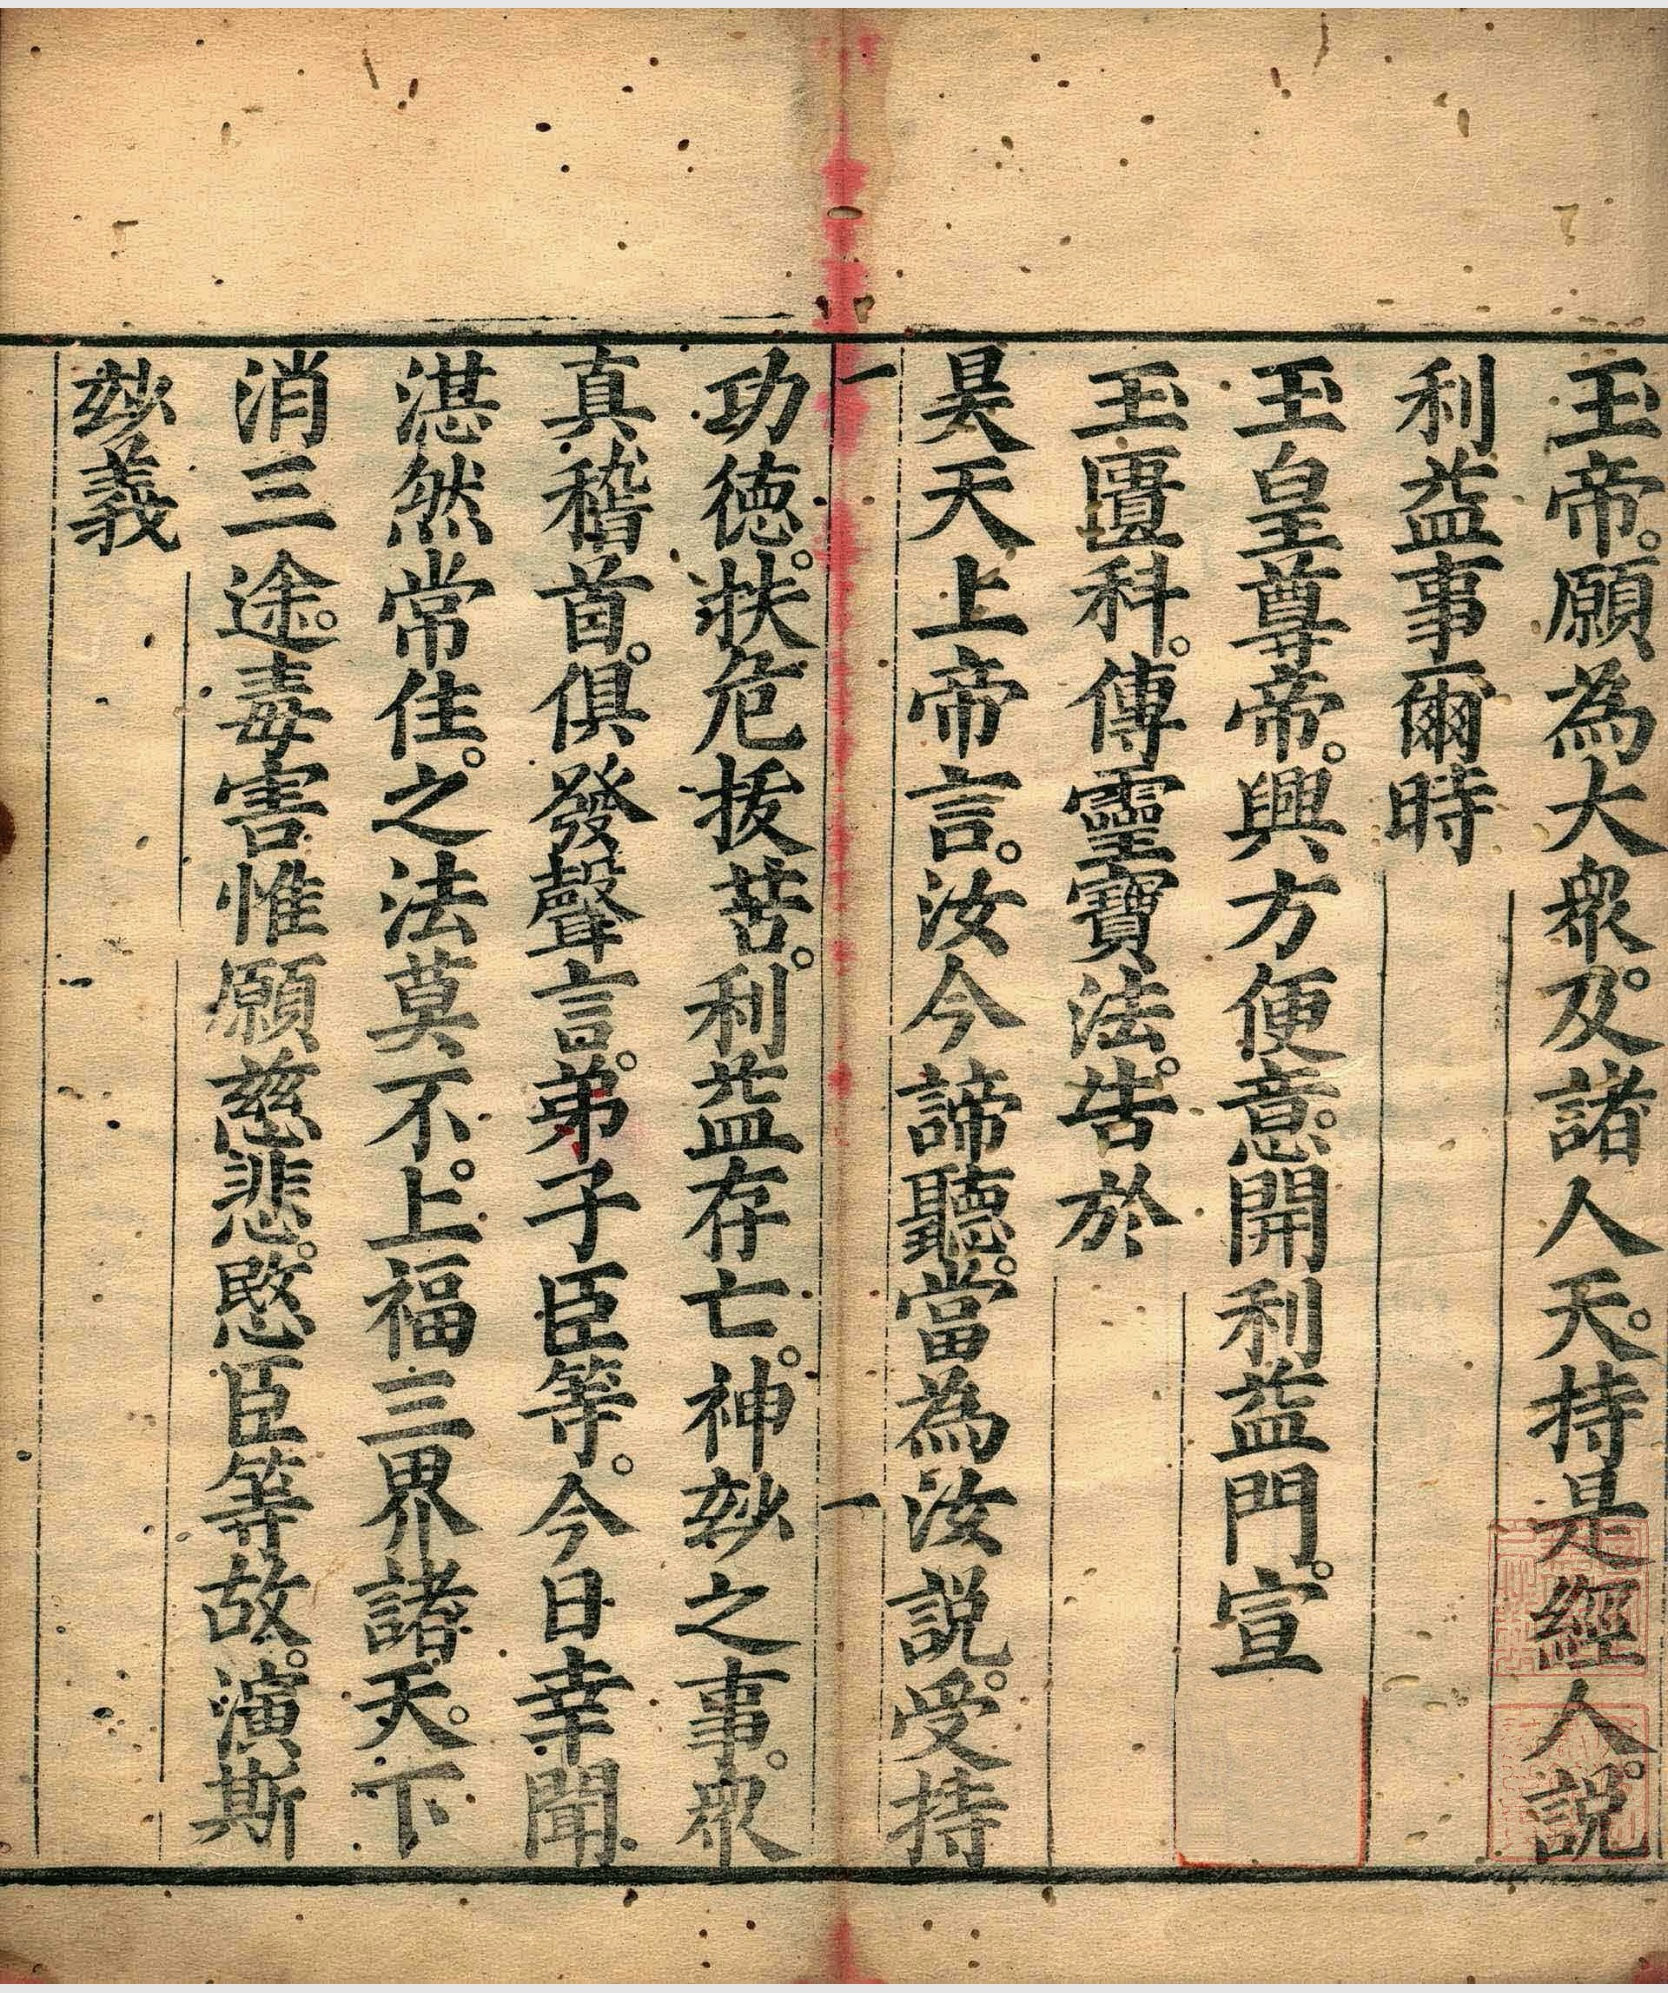 玉帝。願為大衆。及諸人天。持是經人。説
利益事爾時
玉皇尊帝。興方便意。開利益門。宣
玉匱科。傳靈寶法。告於
昊天上帝言。汝今諦聽。當為汝説。受持
一 一
功德。扶危拔苦。利益存亡。神玅之事。衆
真稽首。俱發聲言。弟子臣等。今日幸聞
湛然常住。之法莫不。上福三界諸天。下
消三途。毒害惟願慈悲。愍臣等故。演斯
玅義